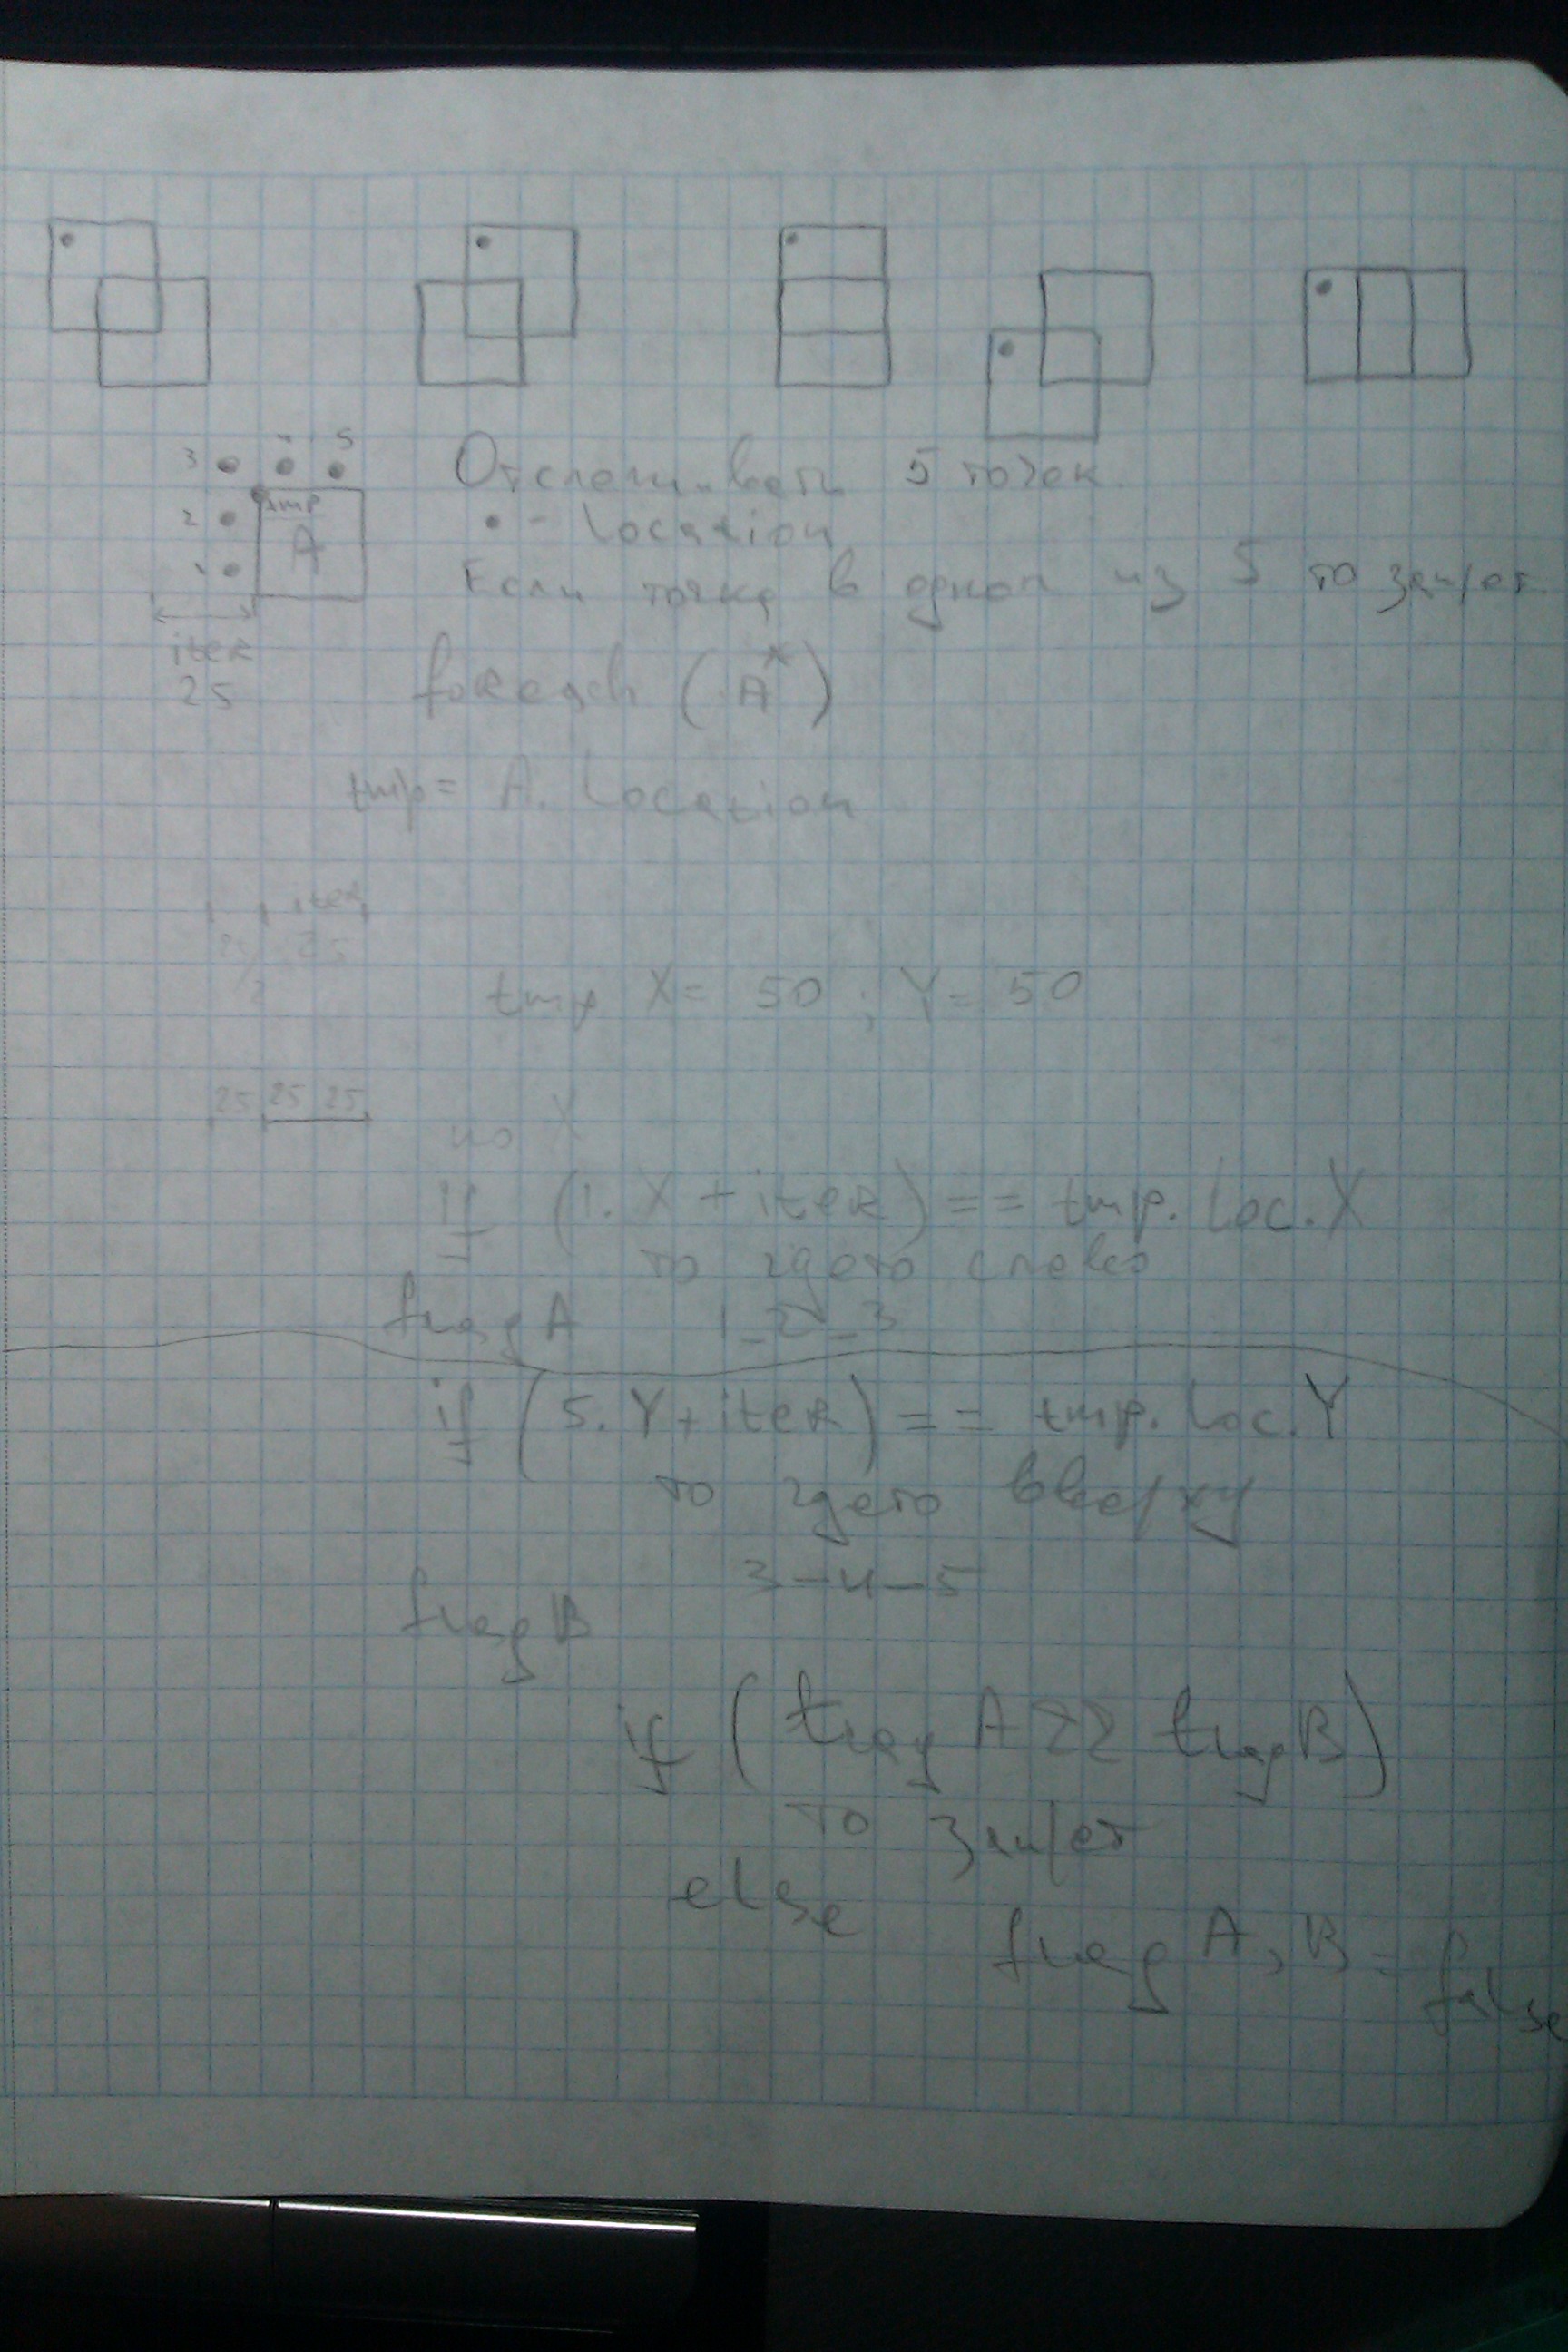 3 4 5
Отслеживать 5 точек
2 tmp
• - Location
1 A
Если точка в одной из 5 то запрет
iter
25
foreach (A*)
tmp = A. Location
iter
25 25
2
tmp X = 50 ; Y = 50
25 25 25
по X
if (1. X + iter) == tmp. Loc. X
то гдето слева
flag A 1-2-3
if (5. Y + iter) == tmp. Loc. Y
то гдето вверху
3-4-5
flag B
if (flag A && flag B)
то запрет
else
flag A, B = false